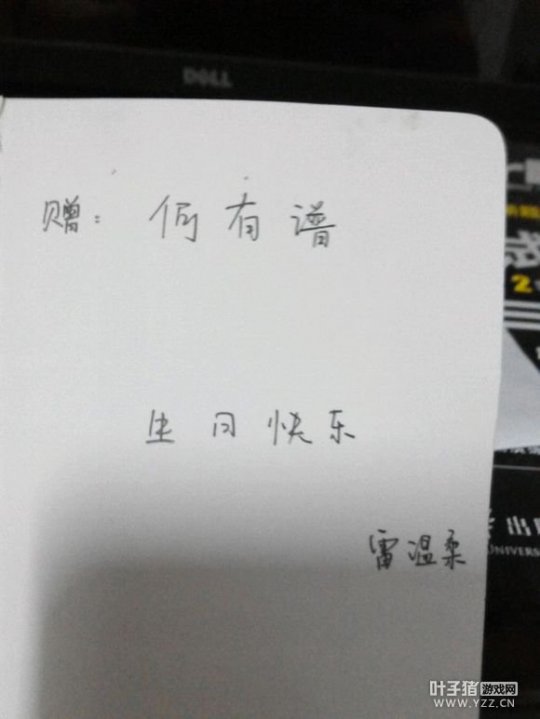 DELL
赠: 何有谱
2
生日快乐
出
雷温柔
UNIVERS
叶子猪游戏网
WWW.YZZ.CN